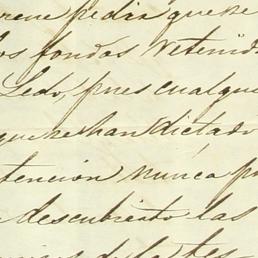 pedir que se
los fondos retenid
Ledo, pues cualqu
que se han dictado
tención nunca p
descubierto las